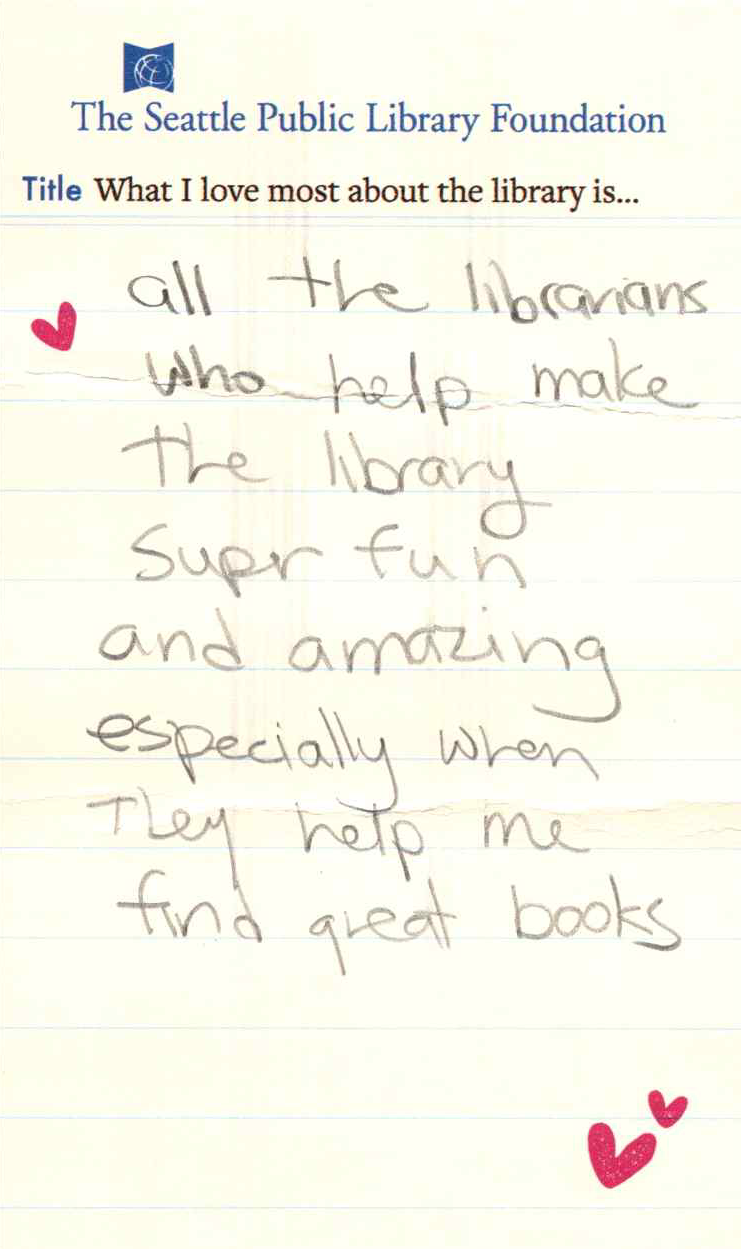 The Seattle Public Library Foundation
Title What I love most about the library is...
all the librarians
who help make
the library
Supr fun
and amazing
especially when
They help me
find great books